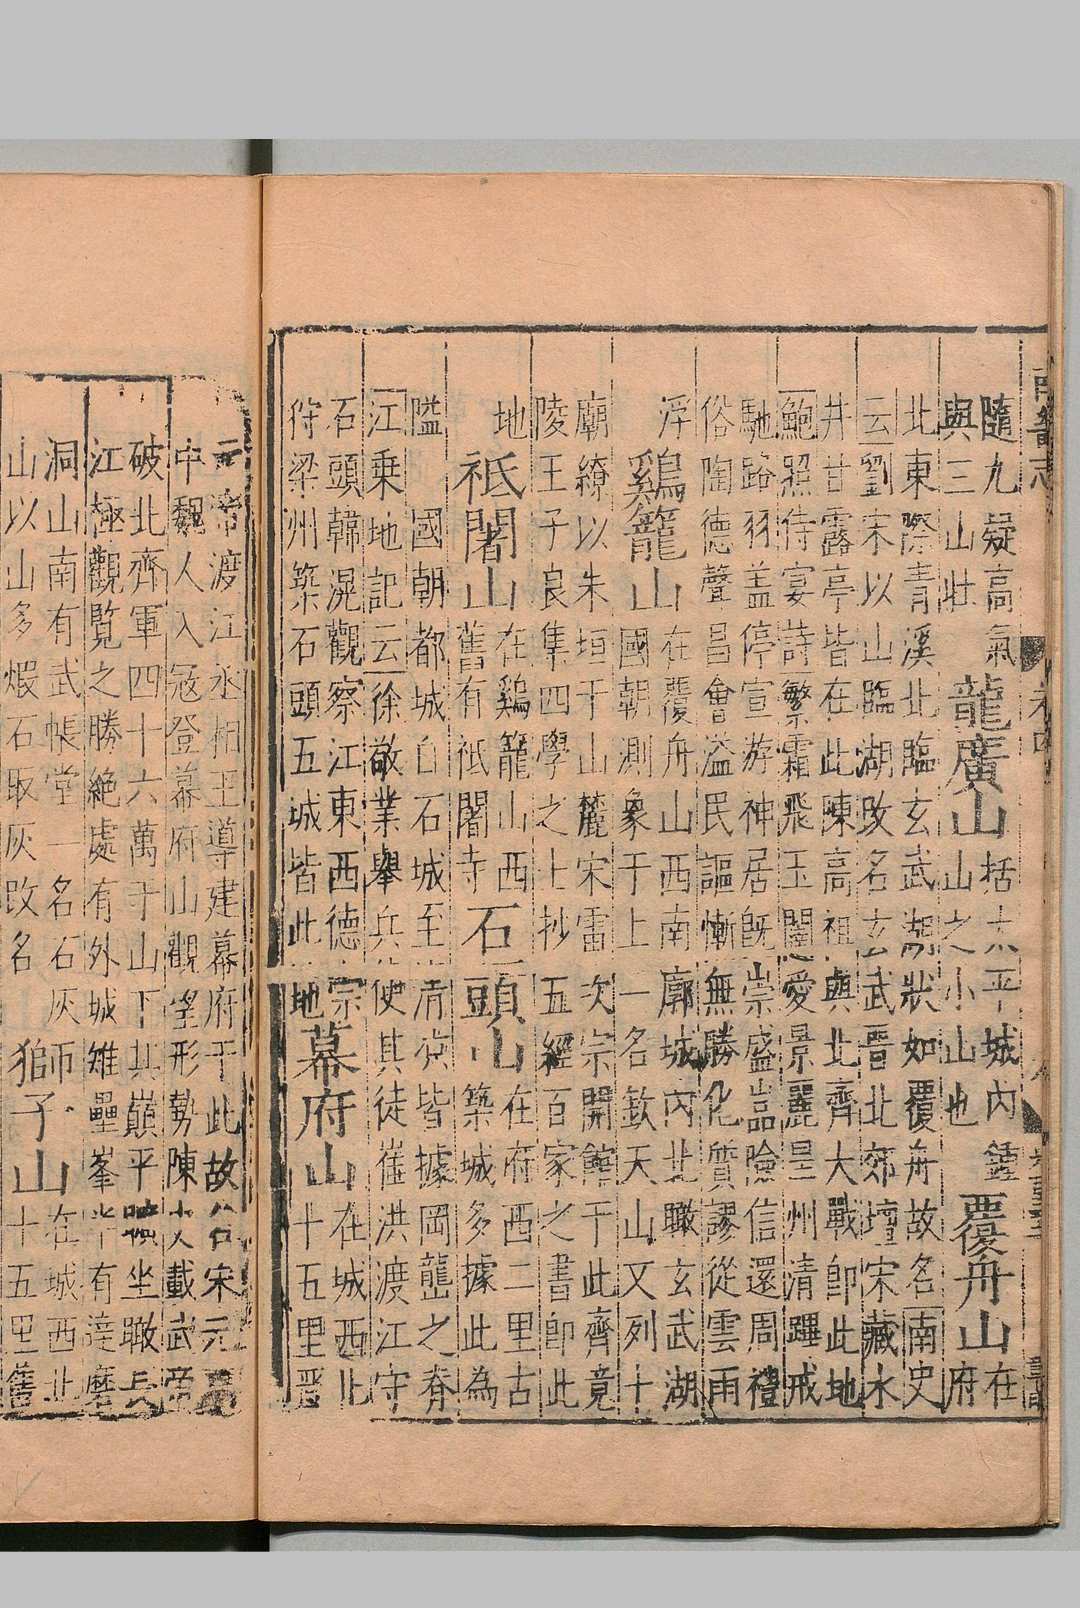 南畿志 卷四
隨九疑高氣龍廣山括太平城內鍾覆舟山在
與三山壯山之小山也府
北東際青溪北臨玄武湖狀如覆舟故名南史
云劉宋以山臨湖改名玄武晉北郊壇宋藏水
井甘露亭皆在此陳高祖與北齊大戰卽此地
鮑照侍宴詩繁霜飛玉闥愛景麗皇州清蹕戒
馳路羽盖停宣游神居旣崇盛嵓險信還周禮
俗陶德聲昌會溢民謳慚無勝化質謬從雲雨
浮鷄籠山在覆舟山西南廓城內北瞰玄武湖
國朝測象于上一名欽天山又列十
廟繚以朱垣于山麓宋雷次宗開館于此齊竟
陵王子良集四學之士抄五經百家之書卽此
地祗闍山在鷄籠山西石頭山在府西二里古
舊有祗闍寺築城多據此為
隘國朝都城自石城至清涼皆據岡壟之脊
江乗地記云徐敬業舉兵使其徒崔洪渡江守
石頭韓滉觀察江東西德宗幕府山在城西北
苻梁州築石頭五城皆此地十五里晉
元帝渡江丞相王導建幕府于此故名宋元嘉
中魏人入寇登幕府山觀望形勢陳大載武帝
破北齊軍四十六萬于山下其巔平曠坐瞰長
江極觀覽之勝絶處有外城雉壘峯半有達磨
洞山南有武帳堂一名石灰獅子山在城西北
山以山多煆石取灰改名十五里舊